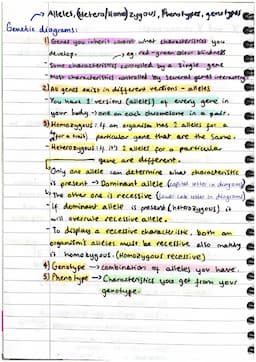 → Alleles, (Hetero/Homo)zygous, Phenotypes, genotypes
Genetic diagrams:
1) Genes you inherit control what characteristics you
develop. → eg. red-green colour blindness
- Some characteristics controlled by a single gene
- Most characteristics controlled by several genes interacting
2) All genes exist in different versions - alleles
- You have 2 versions (alleles) of every gene in
your body → one on each chromosome in a pair.
3) Homozygous: If an organism has 2 alleles for a
(for a trait) particular gene that are the same.
- Heterozygous: If it's 2 alleles for a particular
gene are different.
- Only one allele can determine what characteristic
is present → Dominant allele (capital letter in diagrams)
- The other one is recessive (lower case letter in diagrams)
- If dominant allele is present (heterozygous) it
will overrule recessive allele.
- To display a recessive characteristic, both an
organism's alleles must be recessive also making
it homozygous. (Homozygous recessive)
4) Genotype → combination of alleles you have.
5) Phenotype → Characteristics you get from your
genotype.